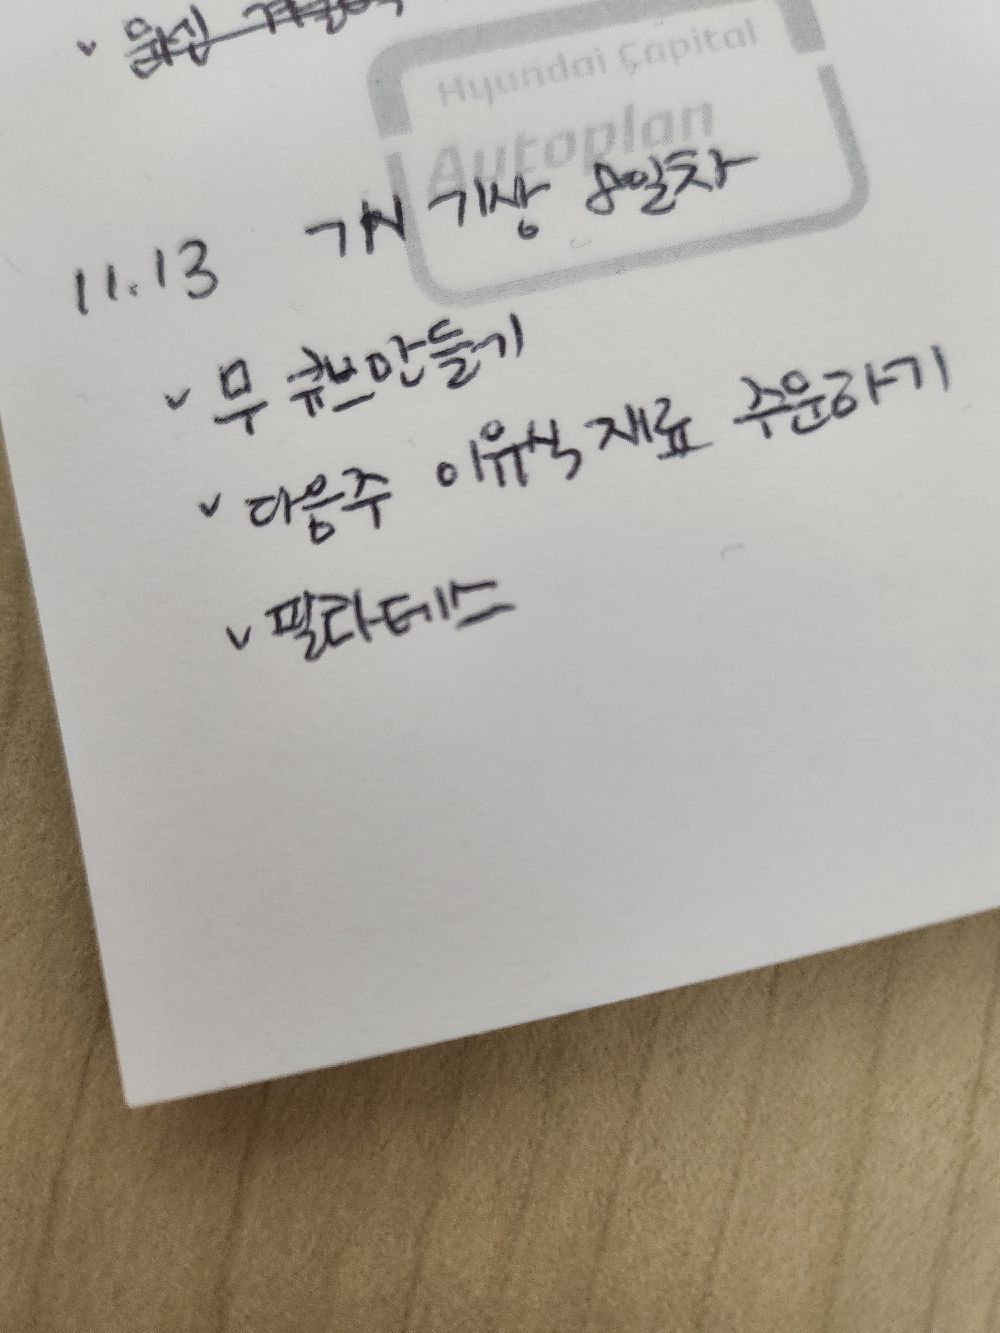 Hyundai Capital
Autoplan
11.13 7시 기상 8일차
✓ 무 큐브만들기
✓ 다음주 이유식 재료 주문하기
✓ 필라테스